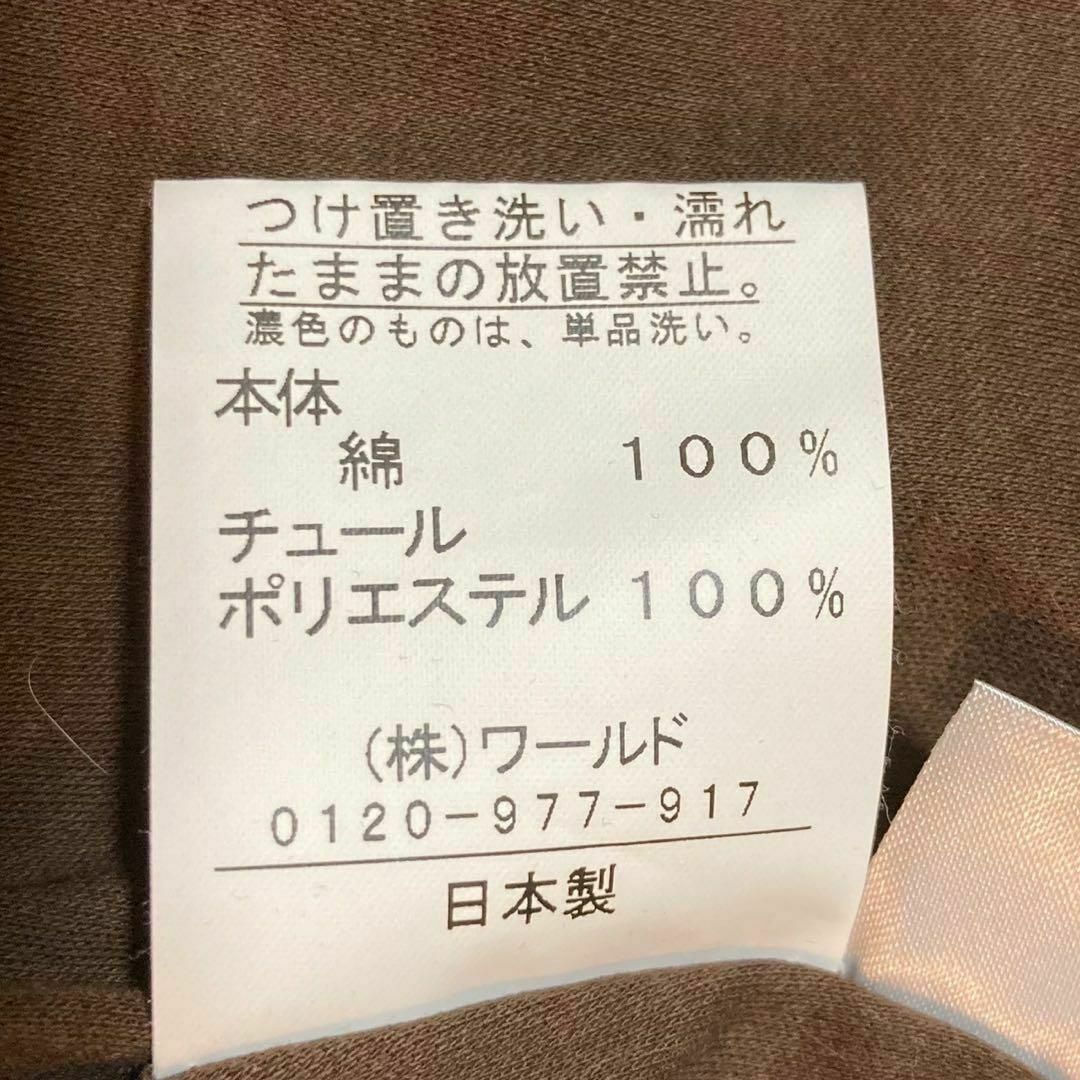 つけ置き洗い・濡れ
たままの放置禁止。
濃色のものは、単品洗い。
本体
綿 100%
チュール
ポリエステル 100%
(株)ワールド
0120-977-917
日本製